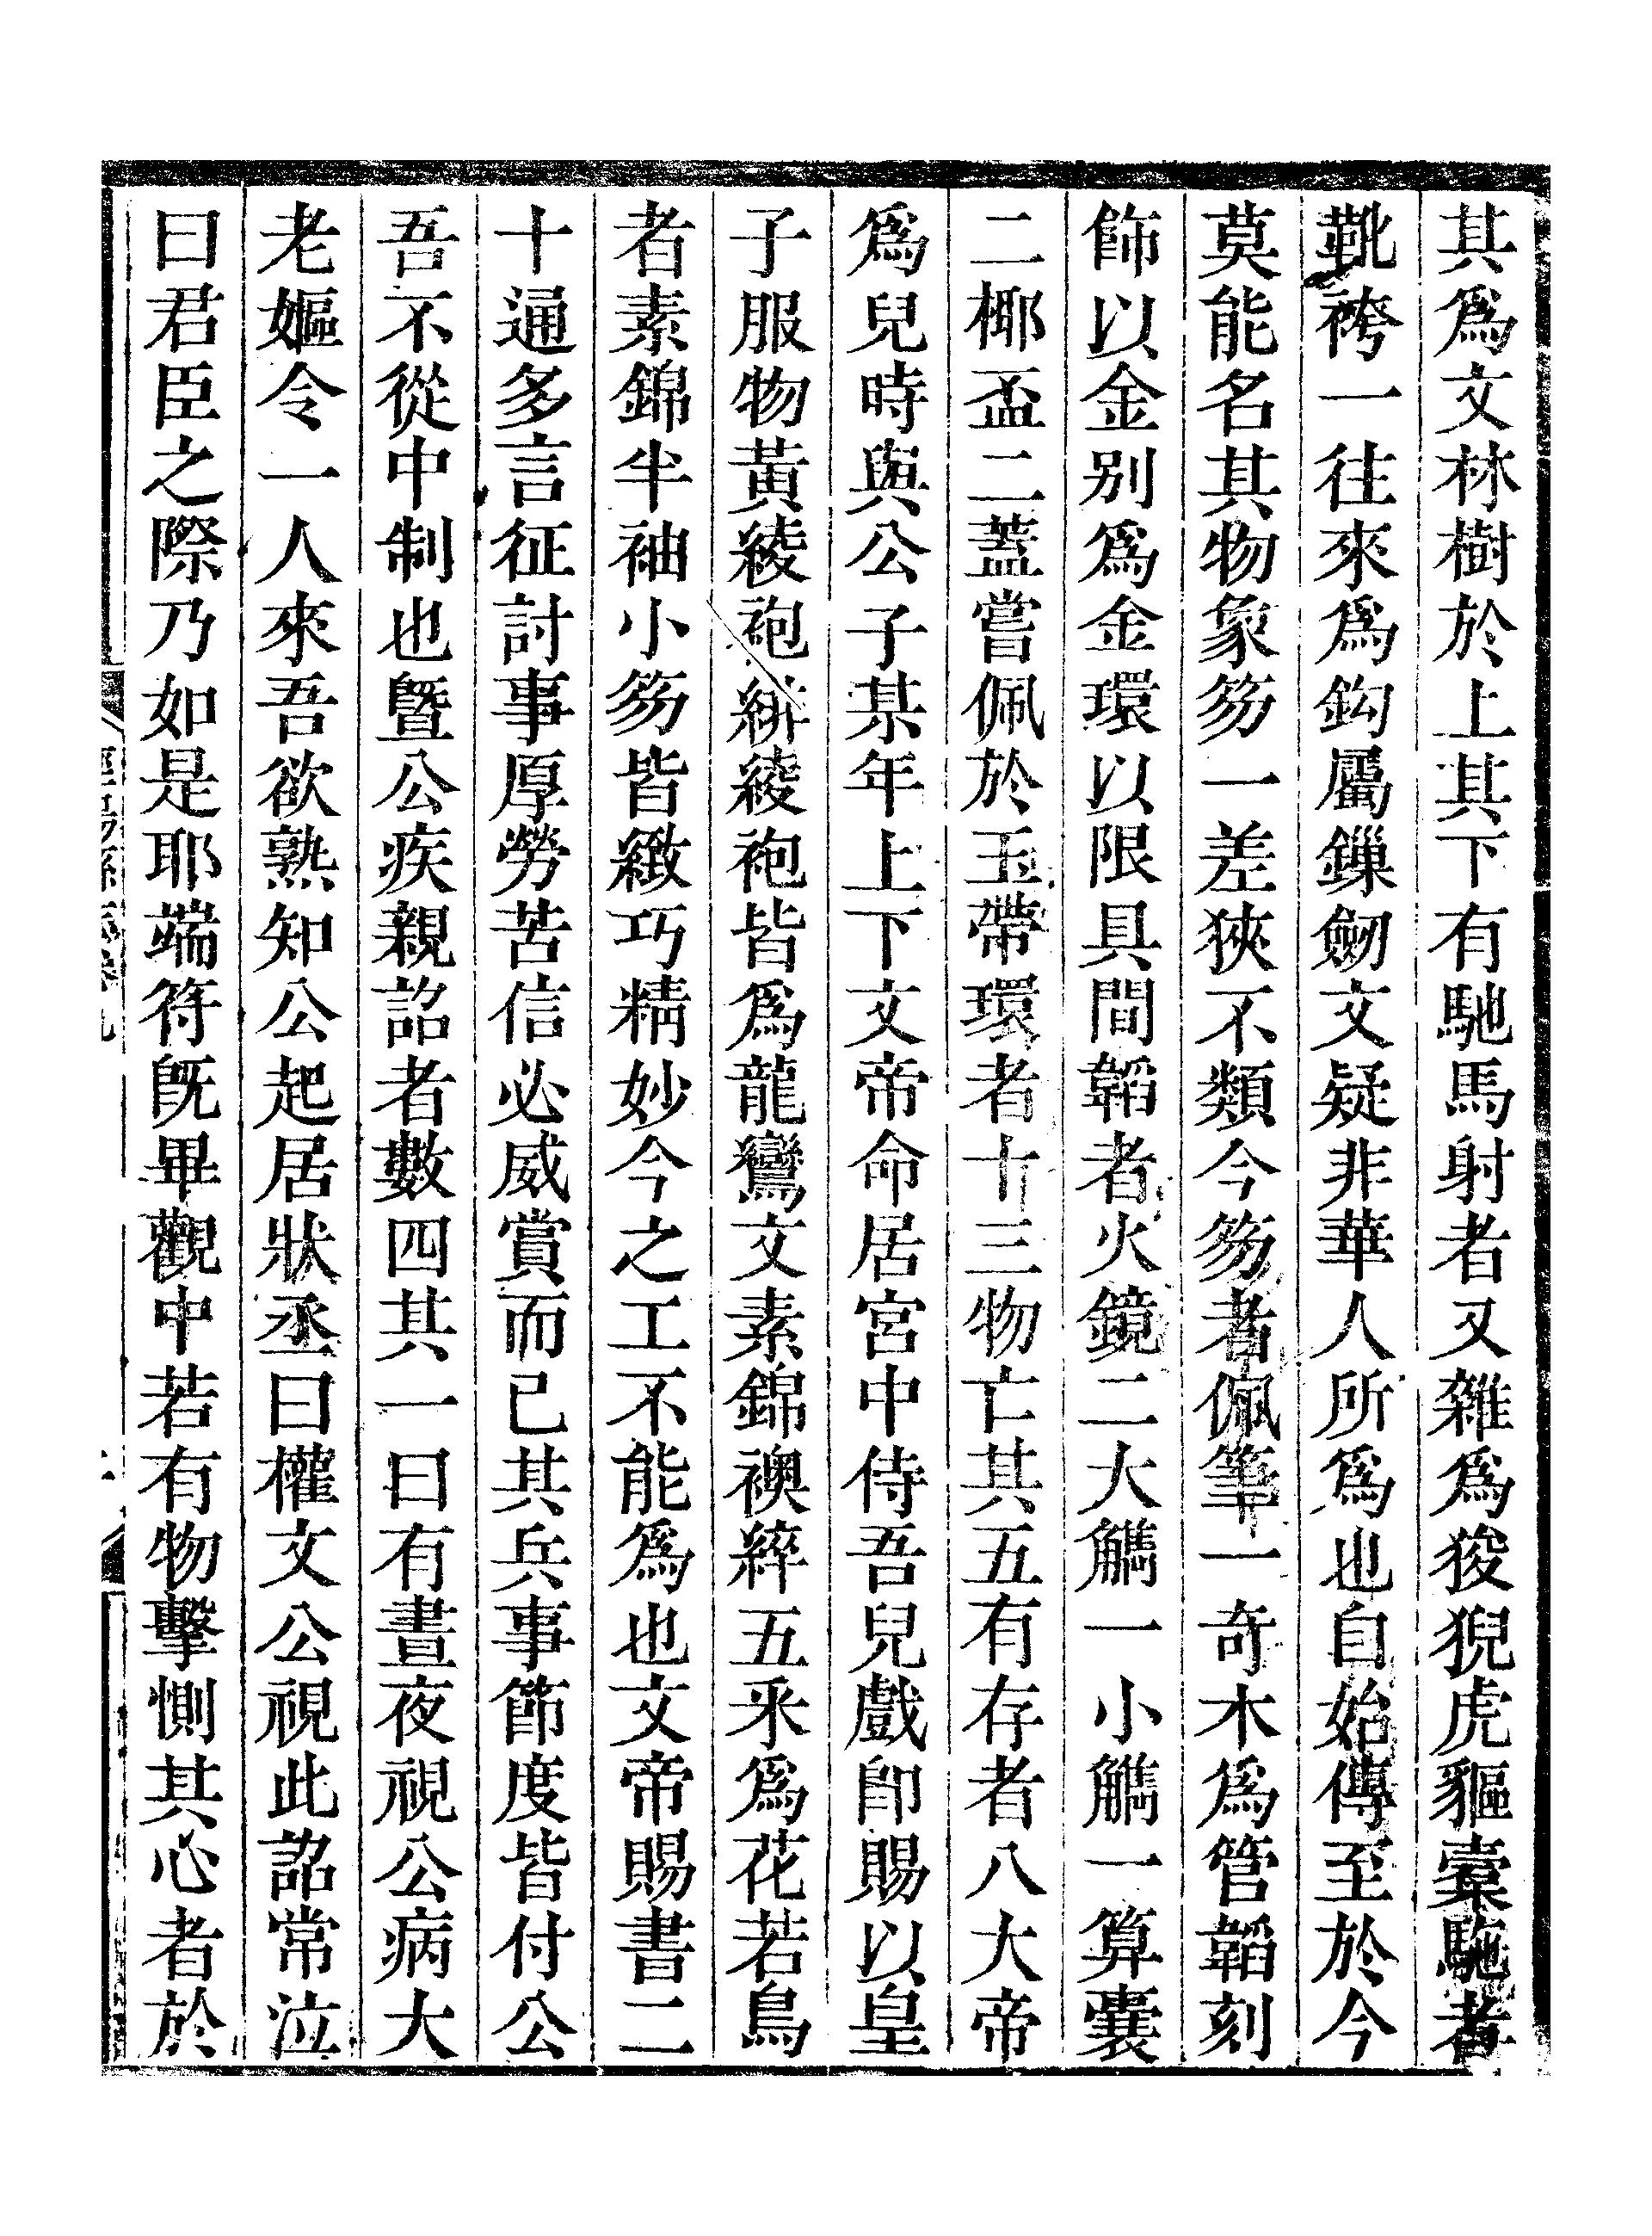 其爲文林樹於上其下有馳馬射者又雜爲狻猊虎貙橐駞者
靴袴一往來爲鈎屬鏁劒文疑非華人所爲也自始傳至於今
莫能名其物象笏一差狹不類今笏者佩筆一奇木爲管韜刻
飾以金别爲金環以限具間韜者火鏡二大觿一小觿一算囊
二椰盃二蓋嘗佩於玉帶環者十三物亡其五有存者八大帝
爲兒時與公子某年上下文帝命居宮中侍吾兒戲卽賜以皇
子服物黃綾袍絣綾袍皆爲龍鸞文素錦襖綷五釆爲花若鳥
者素錦半袖小笏皆緻巧精妙今之工不能爲也文帝賜書二
十通多言征討事厚勞苦信必威賞而已其兵事節度皆付公
吾不從中制也曁公疾親詔者數四其一曰有晝夜視公病大
老嫗令一人來吾欲熟知公起居狀丞曰權文公視此詔常泣
曰君臣之際乃如是耶端符旣畢觀中若有物擊惻其心者於